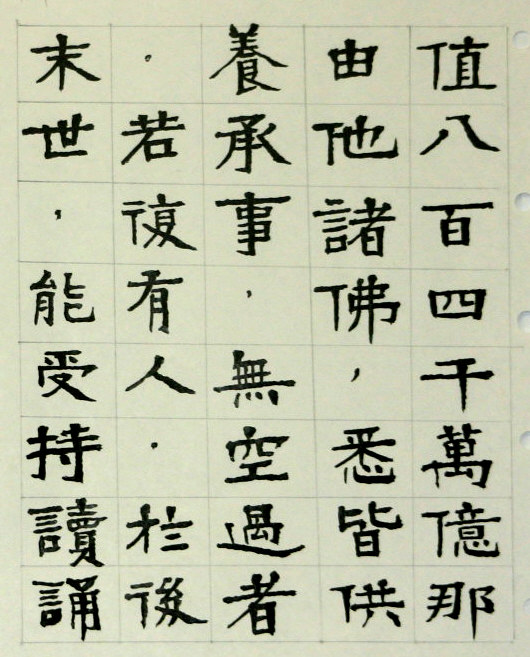 值八百四千萬億那
由他諸佛，悉皆供
養承事，無空過者
．若復有人．於後
末世，能受持讀誦